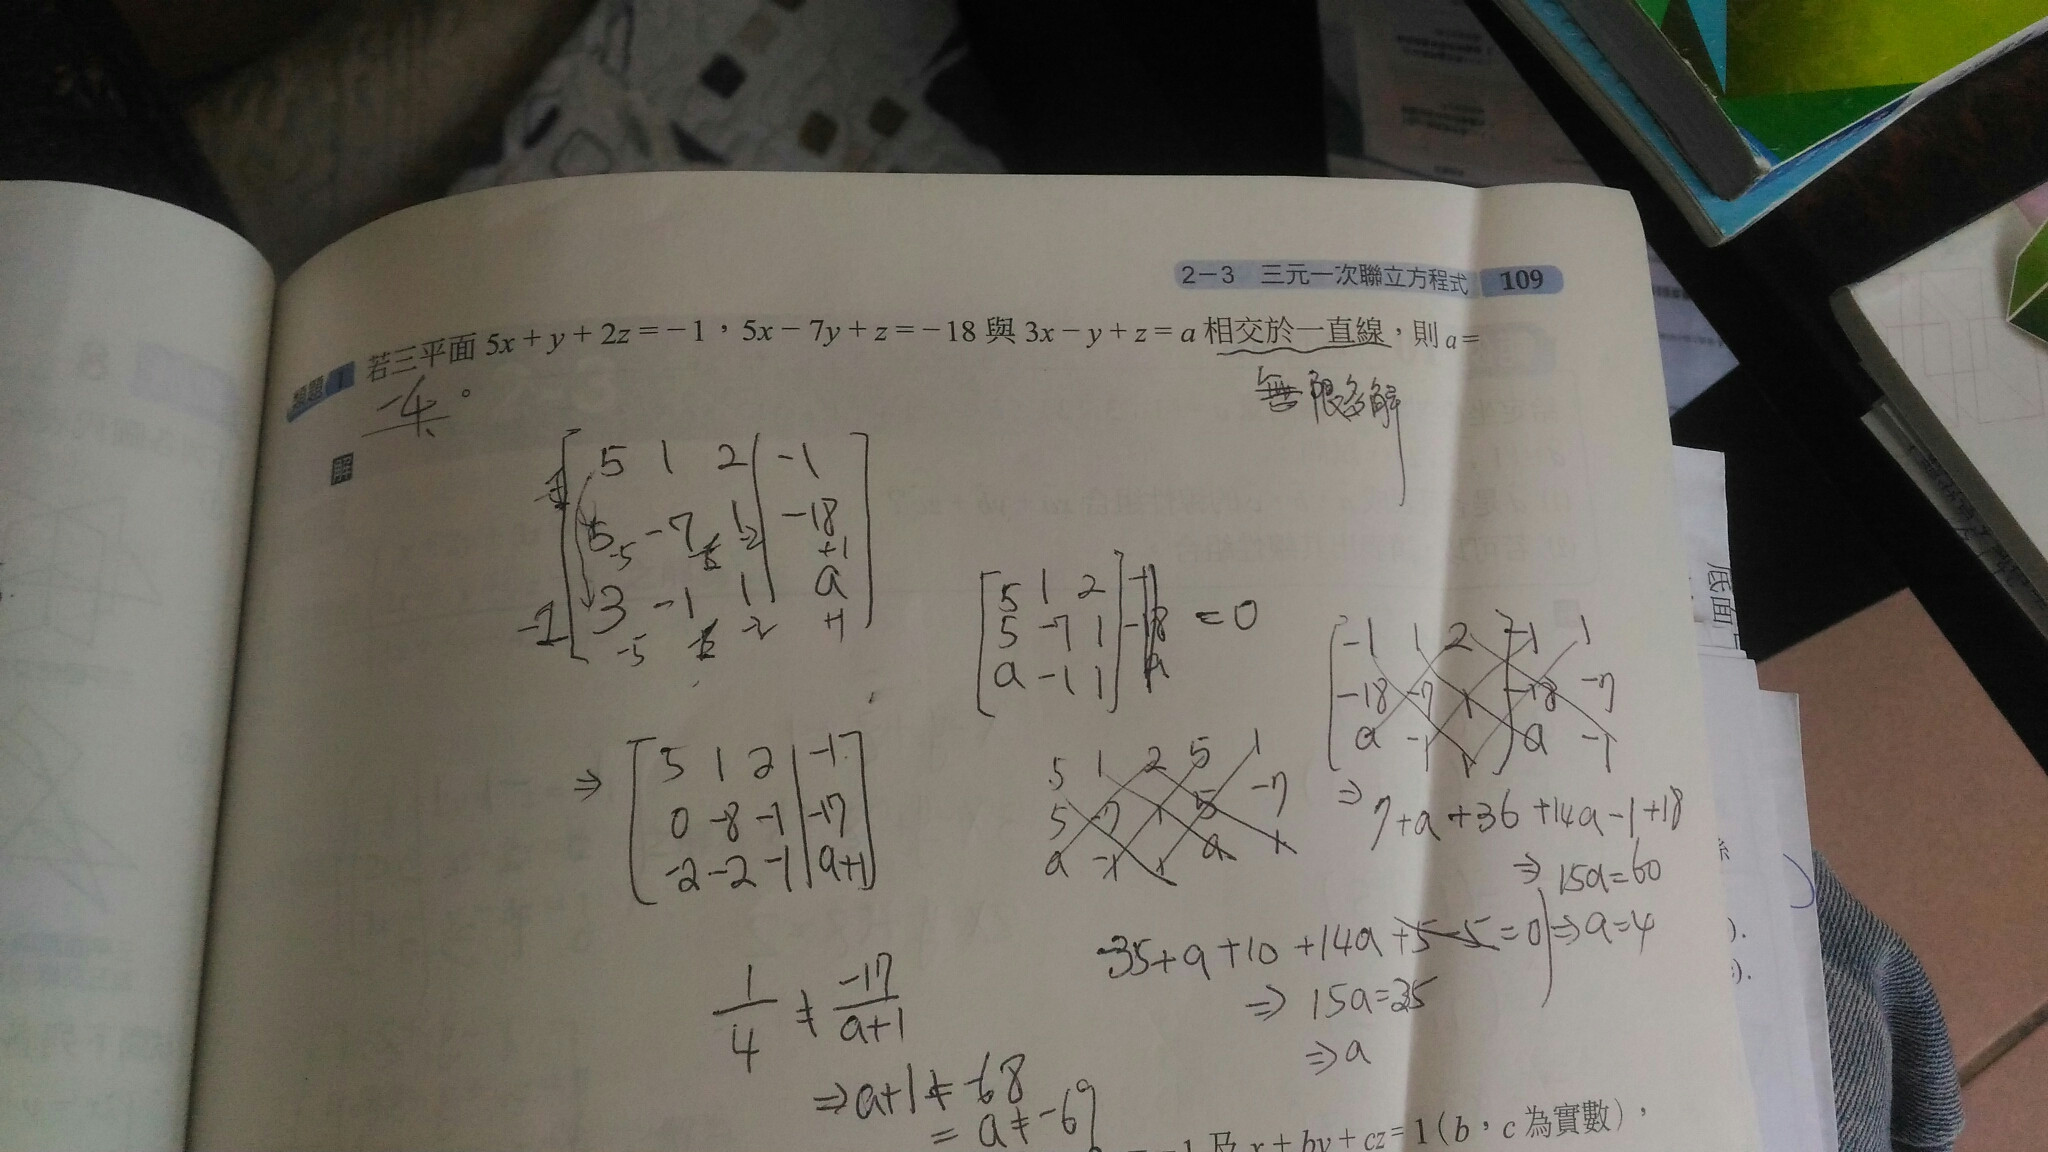 2－3 三元一次聯立方程式 109
類題 1 若三平面 5x＋y＋2z＝－1，5x－7y＋z＝－18 與 3x－y＋z＝a 相交於一直線，則 a＝
-4。
無限多解
解
5 1 2 | -1
5 -7 1 | -18
-5 -2 +1
3 -1 1 | a
-5 -2 +1
5 1 2
5 -7 1 = 0
a -1 1
-1 1 2 -1 1
-18 -7 1 -18 -7
a -1 1 a -1
⇒ 5 1 2 | -1
0 -8 -1 | -17
-2 -2 -1 | a+1
5 1 2 5 1
5 -7 1 5 -7
a -1 1 a 1
⇒ 7+a+36+14a-1+18
⇒ 15a=60
⇒ a=4
-35+a+10+14a+5-5=0
⇒ 15a=25
⇒ a
1/4 ≠ -17/a+1
⇒ a+1 ≠ -68
= a ≠ -69
＝－1 及 x＋by＋cz＝1（b，c 為實數），
底面